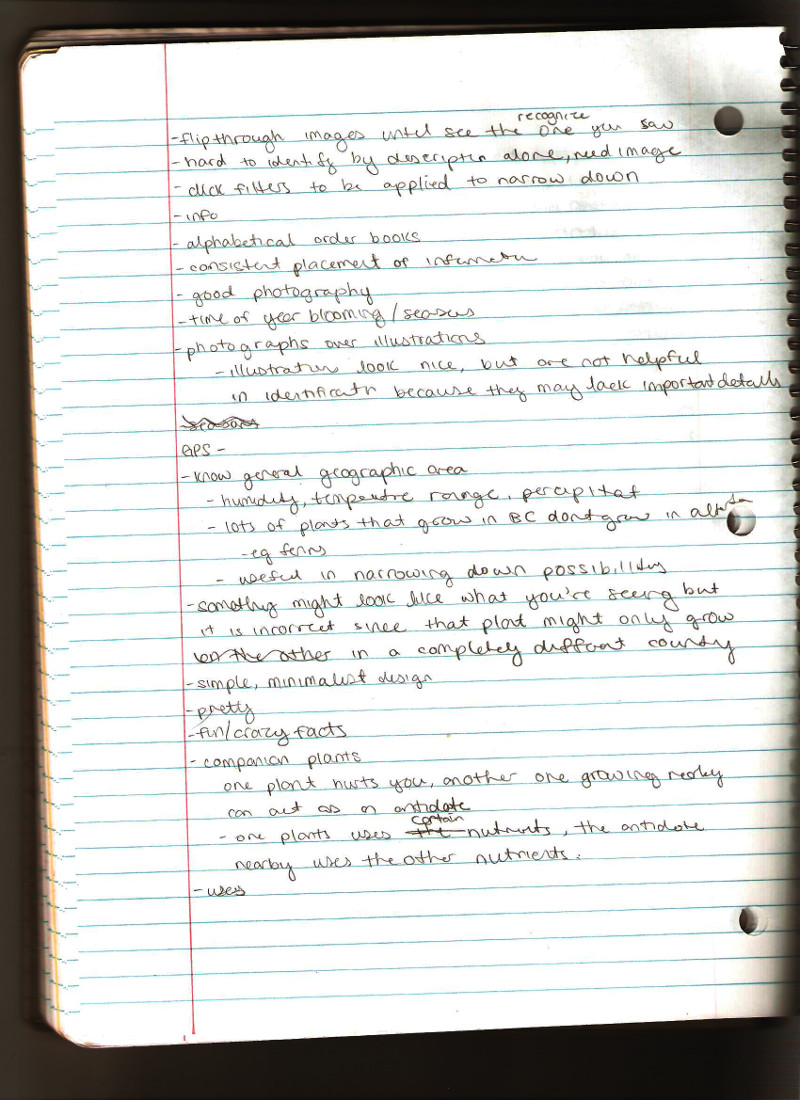 recognize
-flip through images until see the one you saw
-hard to identify by descriptin alone, need image
-click filters to be applied to narrow down
-info
-alphabetical order books
-consistent placement of informatn
-good photography
-time of year blooming/seasons
-photographs over illustrations
-illustration look nice, but are not helpful
in identificatn because they may lack important details
seasons
GPS-
-know general geographic area
-humidity, tempeatre range, percipitat
-lots of plants that grow in BC dont grow in
-eg ferns
-useful in narrowing down possibility
-somethig might look like what you're seeing but
it is incorrect since that plant might only grow
on the other in a completely different country
-simple, minimalist design
-pretty
-fun/crazy facts
-companion plants
one plant hurts you, another one growing nearby
can act as an antidote
certain
-one plants uses the nutrients, the antidote
nearby uses the other nutrients.
-uses